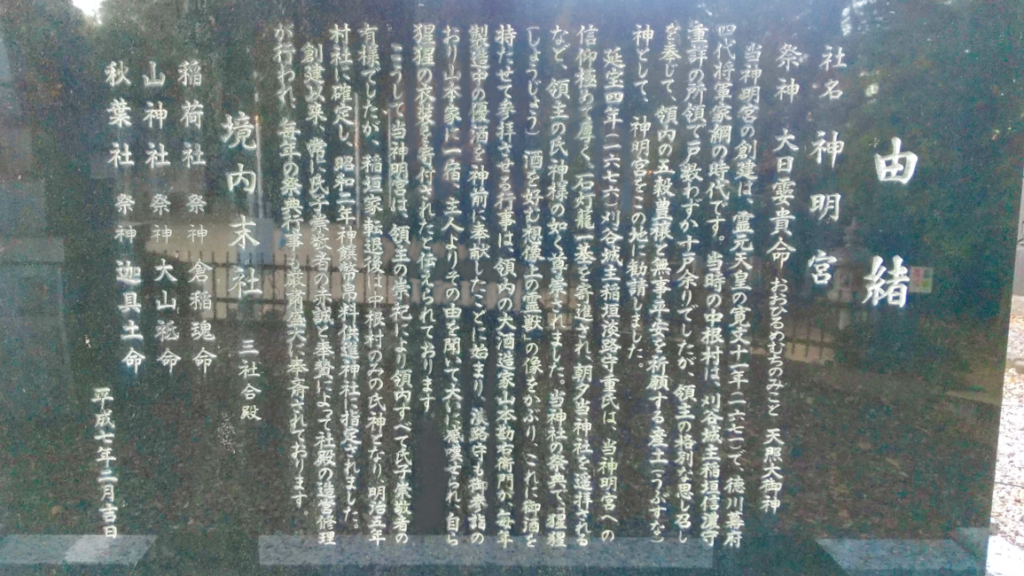 由緒
社名 神明宮
祭神 大日孁貴命 おおひるめむちのみこと 天照大御神
当神明宮の創建は、霊元天皇の寛文十一年(一六七一)で、徳川幕府
四代将軍家綱の時代です。当時の中根村は、刈谷城主稲垣信濃守
重詳の所領で戸数わずか十戸余りでしたが、領主の格別の思し召し
を奉じて、領内の五穀豊穣と無事平安を祈願する産土(うぶすな)
神として、神明宮をこの地に勧請しました。
延宝四年(一六七六)刈谷城主稲垣淡路守重氏は、当神明宮への
信仰極めて厚く、石灯籠一基を寄進され、朝夕当神社を遥拝される
など、領主の氏神様の如く尊崇されました。当神社の祭典で「猩猩
(しょうじょう)酒を好む想像上の霊獣」の像をかぶり、これに御酒を
持たせて参拝させる行事は、領内の大酒造家山本勘右衛門が、毎年
製造中の優酒を神前に奉献したことに始まり、淡路守も御参詣の
おり山本家に一宿、主人よりその由を聞いて大いに感嘆せられ、自ら
猩猩の衣裳を寄付されたと伝えられております
こうして、当神明宮は、領主の崇祀により領内すべて氏子崇敬者の
有様でしたが、稲垣家転退後は中根村のみの氏神となり、明治五年
村社に確定し、昭和二年神饌幣帛料供進神社に指定されました。
創建以来、常に氏子崇敬者の赤誠と奉賛によって社殿の造営修理
が行われ、毎年の祭典行事も厳粛盛大に奉斎されております
境内末社 三社合殿
稲荷社 祭神 倉稲魂命
山神社 祭神 大山祗命
秋葉社 祭神 迦具土命
平成七年二月吉日